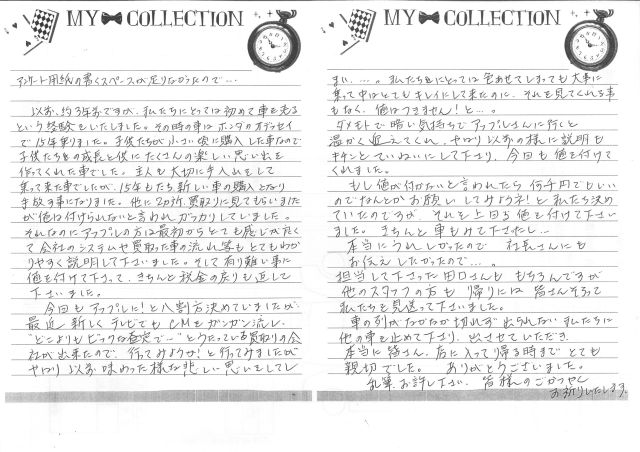 MY COLLECTION
アンケート用紙の書くスペースが足りなかったので…
以前、約3年前ですが、私たちにとっては初めて車を売る
という経験をいたしました。その時の車はホンダのオデッセイ
で15年乗りました。子供たちが小さい頃に購入した車なので
子供たちの成長と供にたくさんの楽しい思い出を
作ってくれた車でした。主人も大切に手入れをして
乗って来た車でしたが、15年もたち新しい車の購入となり
手放す事になりました。他に2カ所、買取りに見てもらいまし
たが値は付けられないと言われガッカリしていました。
それなのにアップルの方は最初からとても感じが良く
て会社のシステムや買取った車の流れ等もとてもわか
りやすく説明して下さいました。そして有り難い事に
値を付けて下さって、きちんと税金の戻りも返して
下さいました。
今回もアップルに!と八割方決めていましたが、
最近新しくテレビでもCMをガンガン流し、
"どこよりもビックな査定で…"とうたっている買取りの会
社が出来たので、行ってみようか!と行ってみましたが
やはり以前味わった様な悲しい思いをしてし
MY COLLECTION
まい…。私たちにとっては色あせてしまっても大事に
乗って中はとてもキレイにして来たのに、それを見てくれる事
もなく、値はつきません!と…。
ダメモトで暗い気持ちでアップルさんに行くと
温かく迎えてくれ、やはり以前の様に説明も
キチンとていねいにして下さり、今回も値を付けて
くれました。
もし値が付かないと言われたら何千円でもいい
のでなんとかお願いしてみようネ!と私たち決め
ていたのですが、それを上回る値を付けて下さい
ました。きちんと車もみて下さたし…
本当にうれしかったので社長さんにも
お伝えしたかったので…。
担当して下さった田口さんももちろんですが
他のスタッフの方も帰りには皆さんそろって
私たちを見送って下さいました。
車の列がなかなか切れず出られない私たちに
他の車を止めて下り、出させていただき、
本当に皆さん、店に入って帰る時までとても
親切でした。ありがとうございました。
乱筆お許し下さい。皆様のごかつやく
お祈りいたします。